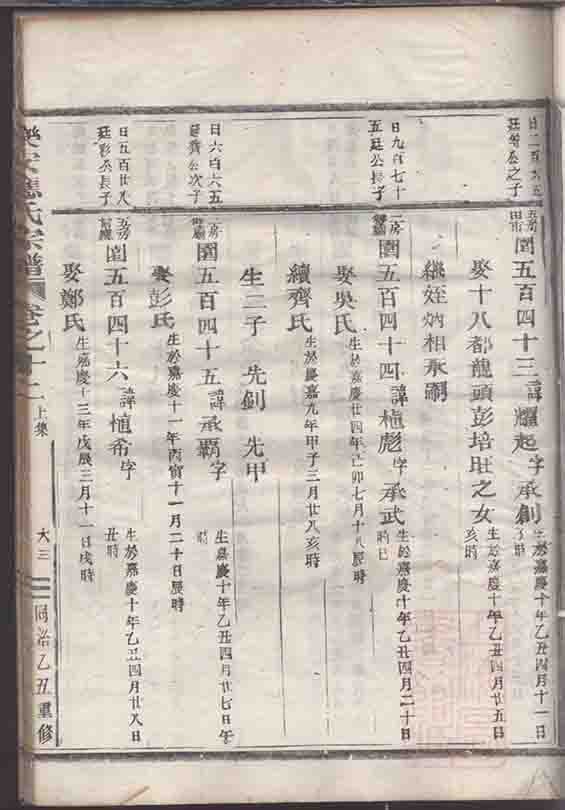 日二百六五
廷彩公之子
五房
圍五百四十三諱耀起字承創
生於嘉慶十年乙丑四月十一日
時
娶十八都龍頭彭培旺之女
生於嘉慶十年乙丑四月廿五日
亥時
繼姪炳相承嗣
日九百七十
五廷公長子
二房
圍五百四十四諱植彪字承武
生於嘉慶十年乙丑四月二十日
時
娶吳氏生於嘉慶廿四年己卯七月十八辰時
續齊氏生於嘉慶九年甲子三月廿八亥時
生二子 先釗 先甲
日六百六五
廷齊公次子
二房
圍五百四十五諱承霸字
生嘉慶十年乙丑四月廿七日午
時
娶彭氏生於嘉慶十一年丙寅十一月二十日辰時
日五百廿八
廷彰公長子
五房
圍五百四十六諱植希字
生於嘉慶十年乙丑四月廿八日
丑時
娶鄭氏生嘉慶十三年戊辰三月十一日戌時
樂安應氏宗譜
卷之十二
上集
大三
同治乙丑重修